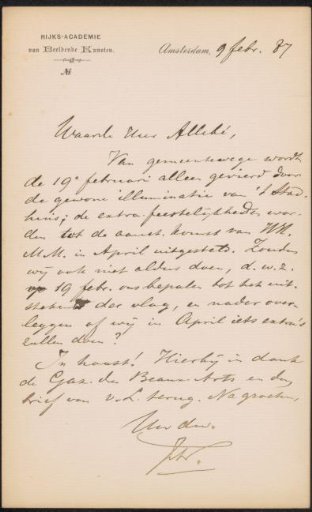 RIJKS-ACADEMIE
van Beeldende Kunsten.
No
Amsterdam, 9 febr. 87
Waarde Heer Allebé,
Van gemeentewege wordt
de 19e februari alleen gevierd door
de gewone illuminatie van 't Stad-
huis; de extra feestelijkheden wor-
den tot de aanst. komst van HH.
M.M. in April uitgesteld. Zouden
wij ook niet aldus doen, d.w.z.
op 19 febr. ons bepalen tot het uit-
steken der vlag, en nader over-
leggen of wij in April iets extra's
zullen doen?
In haast! Hierbij in dank
de Gaz. des Beaux-Arts en den
brief van v.L. terug. Na groeten,
Uw dw.